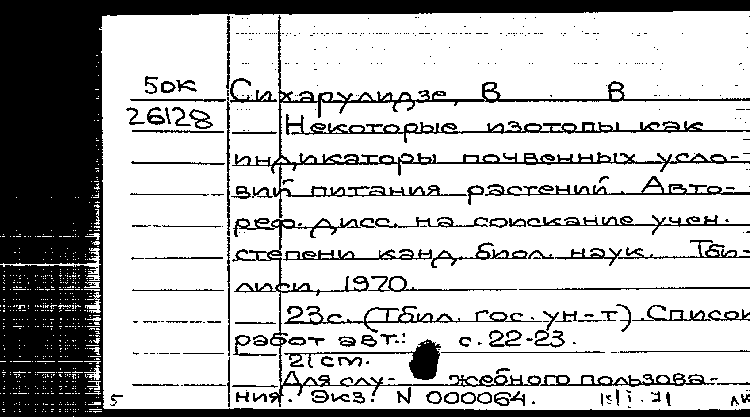 50к Сихарулидзе, В В
26128 Некоторые изотопы как
индикаторы почвенных усло-
вий питания растений. Авто-
реф. дисс. на соискание учен.
степени канд. биол. наук. Тби-
лиси, 1970.
23с. (Тбил. гос. ун-т). Список
работ авт.: с. 22-23.
21 cm.
Для слу- жебного пользова-
5 ния. Экз. N 000064.